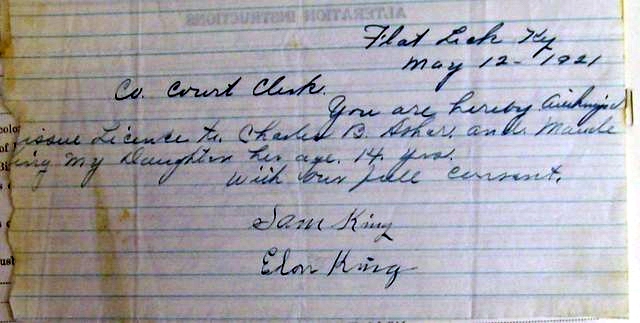 ALTERATION INSTRUCTIONS
Flat Lick Ky
May 12 - 1921
Co. Court Clerk.
You are hereby
issue Licence to Charles B. Asher. and. Maude
King My Daughter her age. 14 yrs.
With our full consent.
Sam King
Elon King